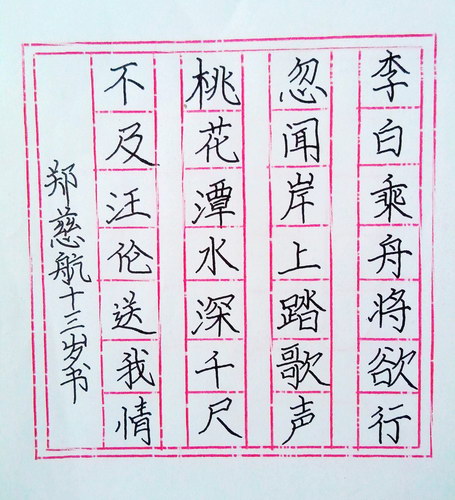 李白乘舟将欲行
忽闻岸上踏歌声
桃花潭水深千尺
不及汪伦送我情
郑慈航十三岁书